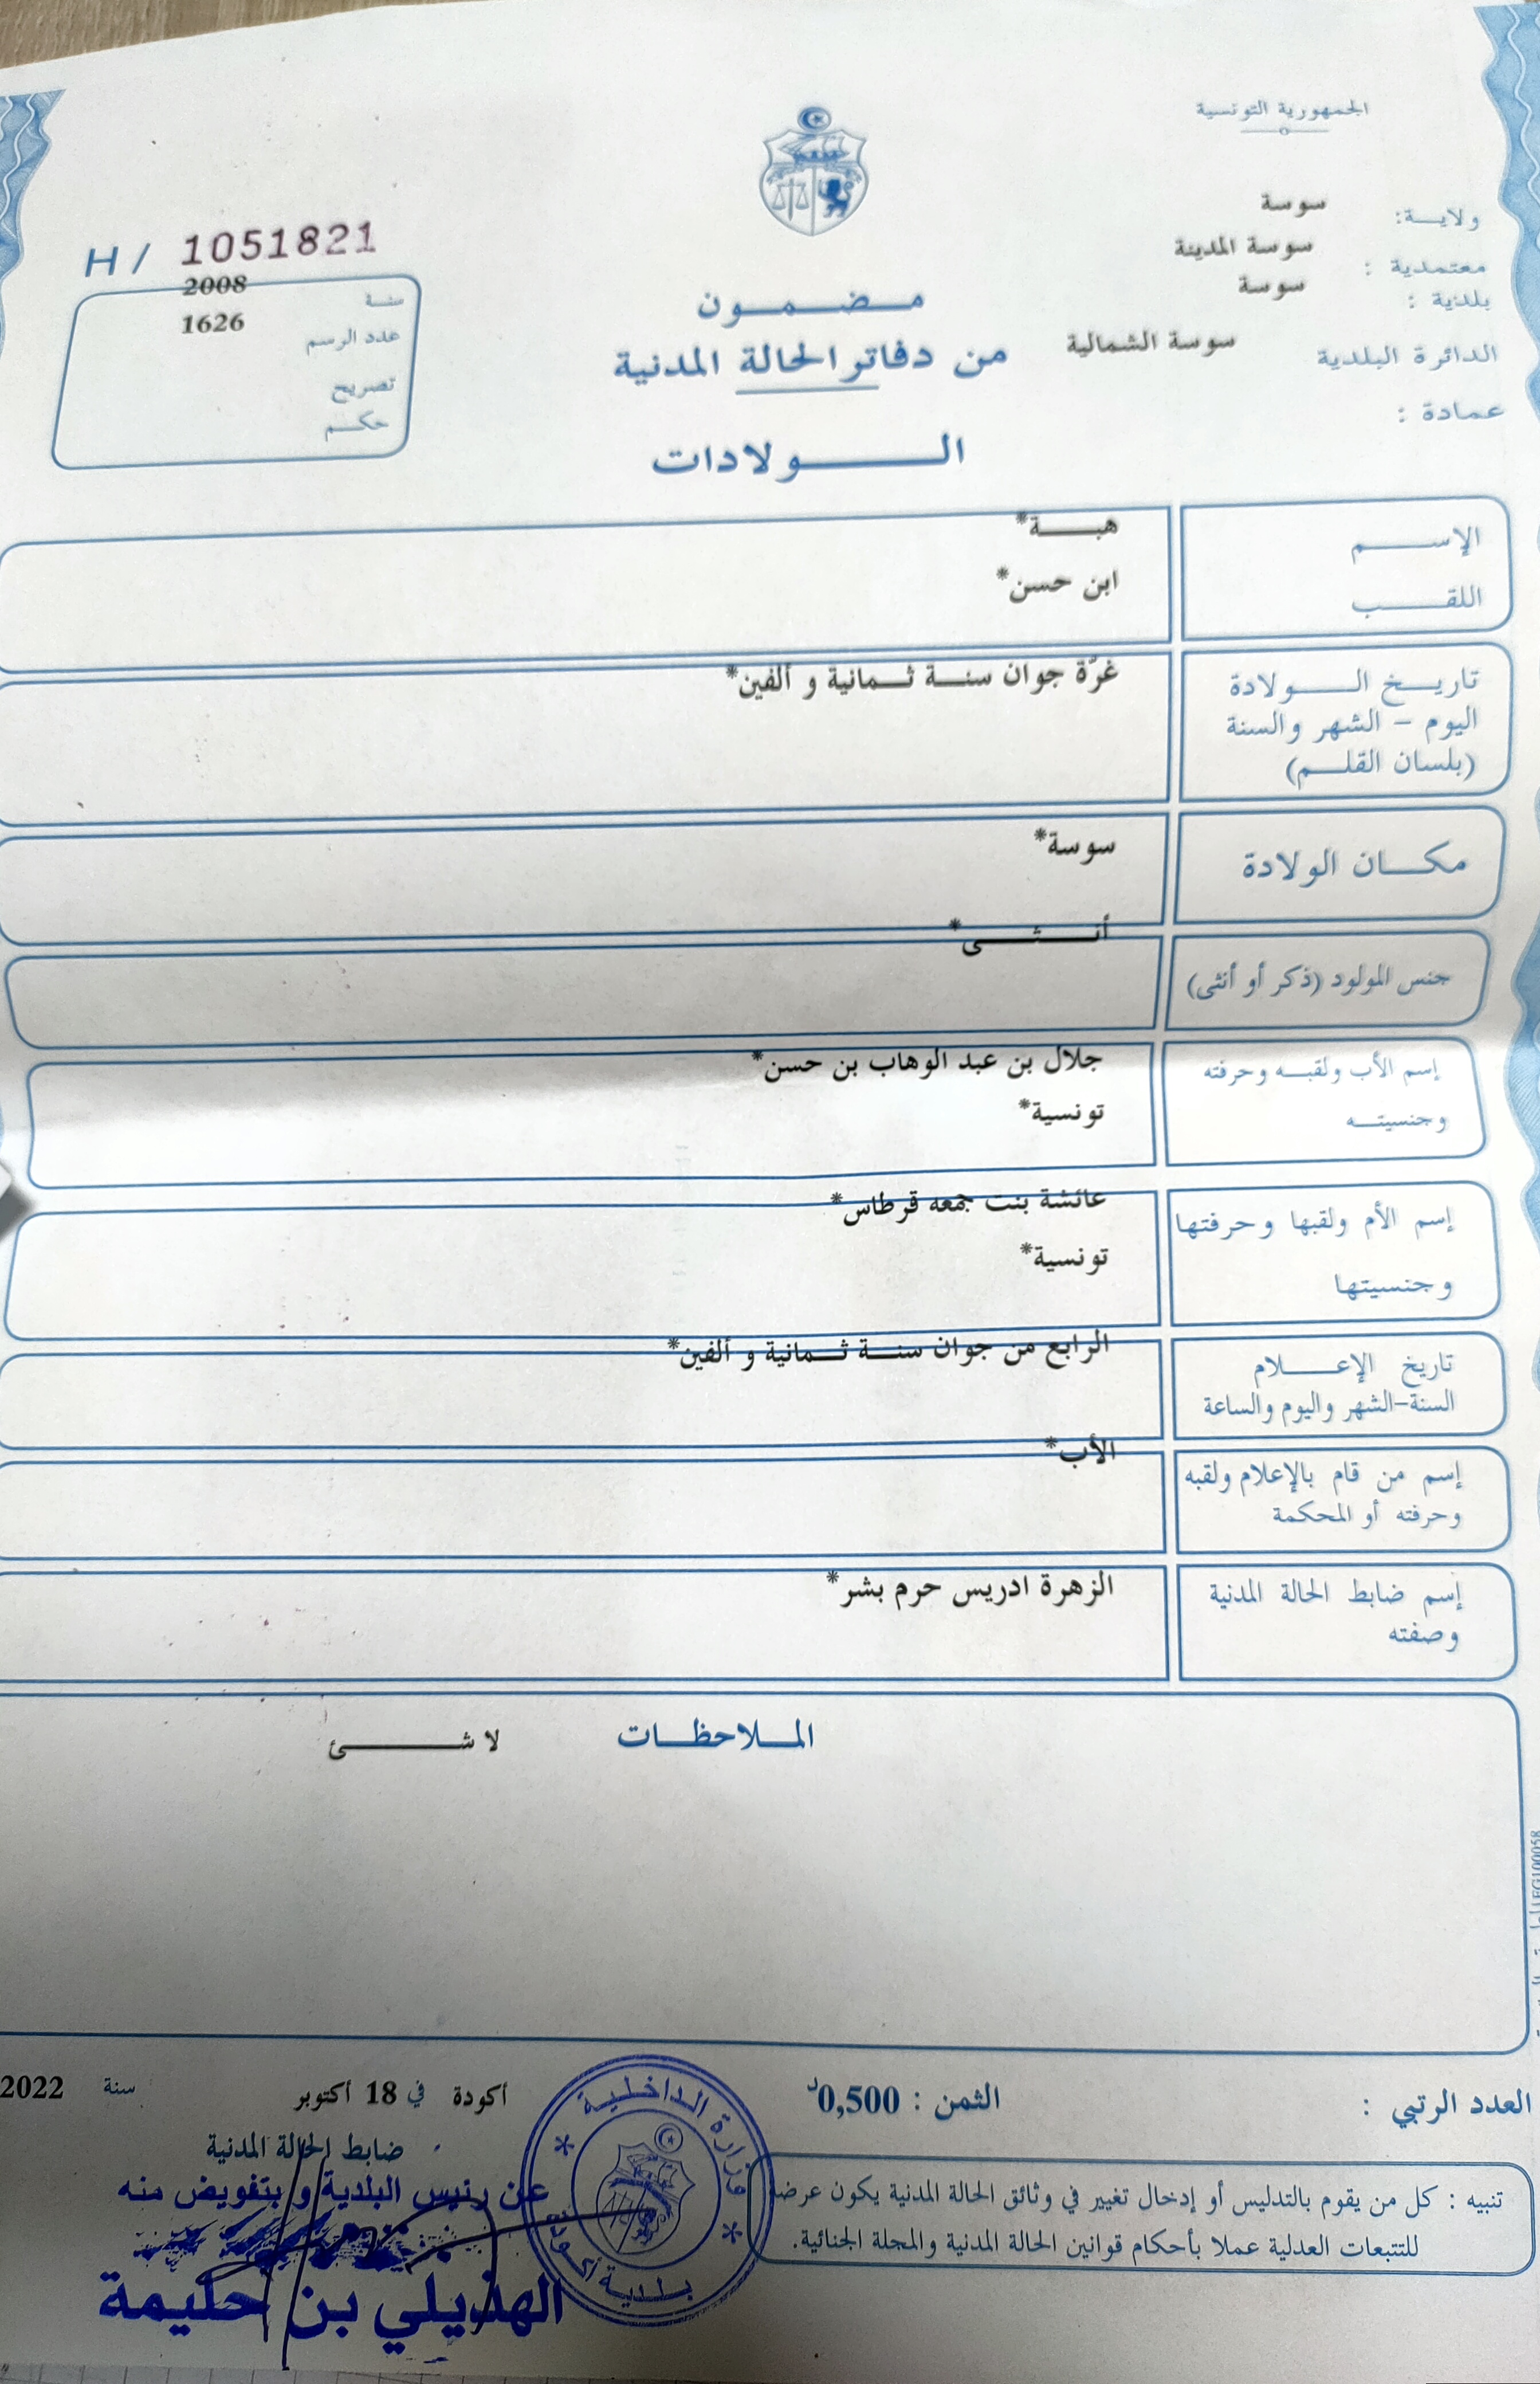 الجمهورية التونسية
ولايـــة: سوسة
معتمدية : سوسة المدينة
بلدية : سوسة
الدائرة البلدية سوسة الشمالية
عمادة :
H/ 1051821
سنة 2008
عدد الرسم 1626
تصريح
حكم
مضمون
من دفاتر الحالة المدنية
الولادات
الإسم هبة*
اللقب ابن حسن*
تاريخ الولادة غرّة جوان سنة ثمانية و ألفين*
اليوم - الشهر والسنة
(بلسان القلم)
مكان الولادة سوسة*
جنس المولود (ذكر أو أنثى) أنثى*
إسم الأب ولقبه وحرفته جلال بن عبد الوهاب بن حسن*
وجنسيته تونسية*
إسم الأم ولقبها وحرفتها عائشة بنت جمعه قرطاس*
وجنسيتها تونسية*
تاريخ الإعلام الرابع من جوان سنة ثمانية و ألفين*
السنة-الشهر واليوم والساعة
إسم من قام بالإعلام ولقبه الأب*
وحرفته أو المحكمة
إسم ضابط الحالة المدنية الزهرة ادريس حرم بشر*
وصفته
الملاحظات لا شئ
العدد الرتبي :
الثمن : 0,500د
أكودة في 18 أكتوبر سنة 2022
ضابط الحالة المدنية
عن رئيس البلدية و بتفويض منه
الهذيلي بن حليمة
وزارة الداخلية
بلدية أكودة
تنبيه : كل من يقوم بالتدليس أو إدخال تغيير في وثائق الحالة المدنية يكون عرضة
للتتبعات العدلية عملا بأحكام قوانين الحالة المدنية والمجلة الجنائية.